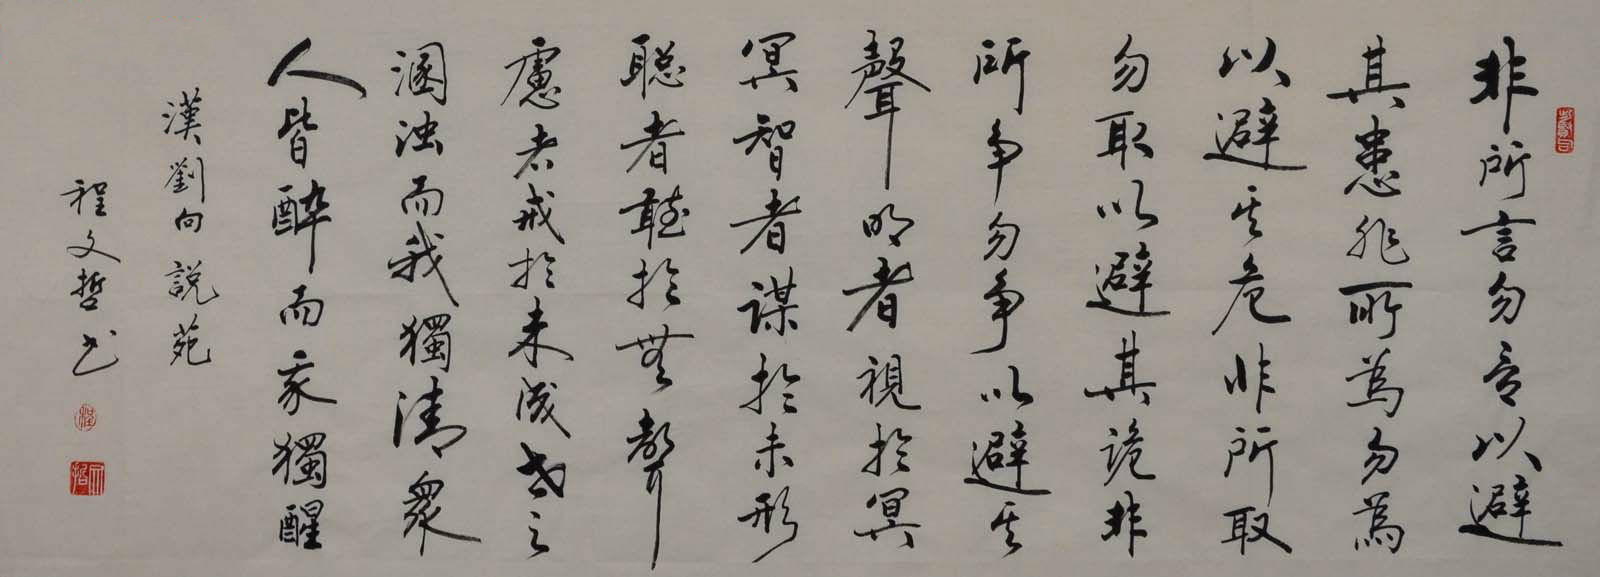 非所言勿言以避
其患非所為勿為
以避其危非所取
勿取以避其詭非
所争勿争以避其
聲明者視於冥
冥智者謀於未形
聪者聽於無聲
慮者戒於未成世之
溷浊而我獨清衆
人皆醉而我獨醒
漢劉向說苑
程文哲书
程
文哲